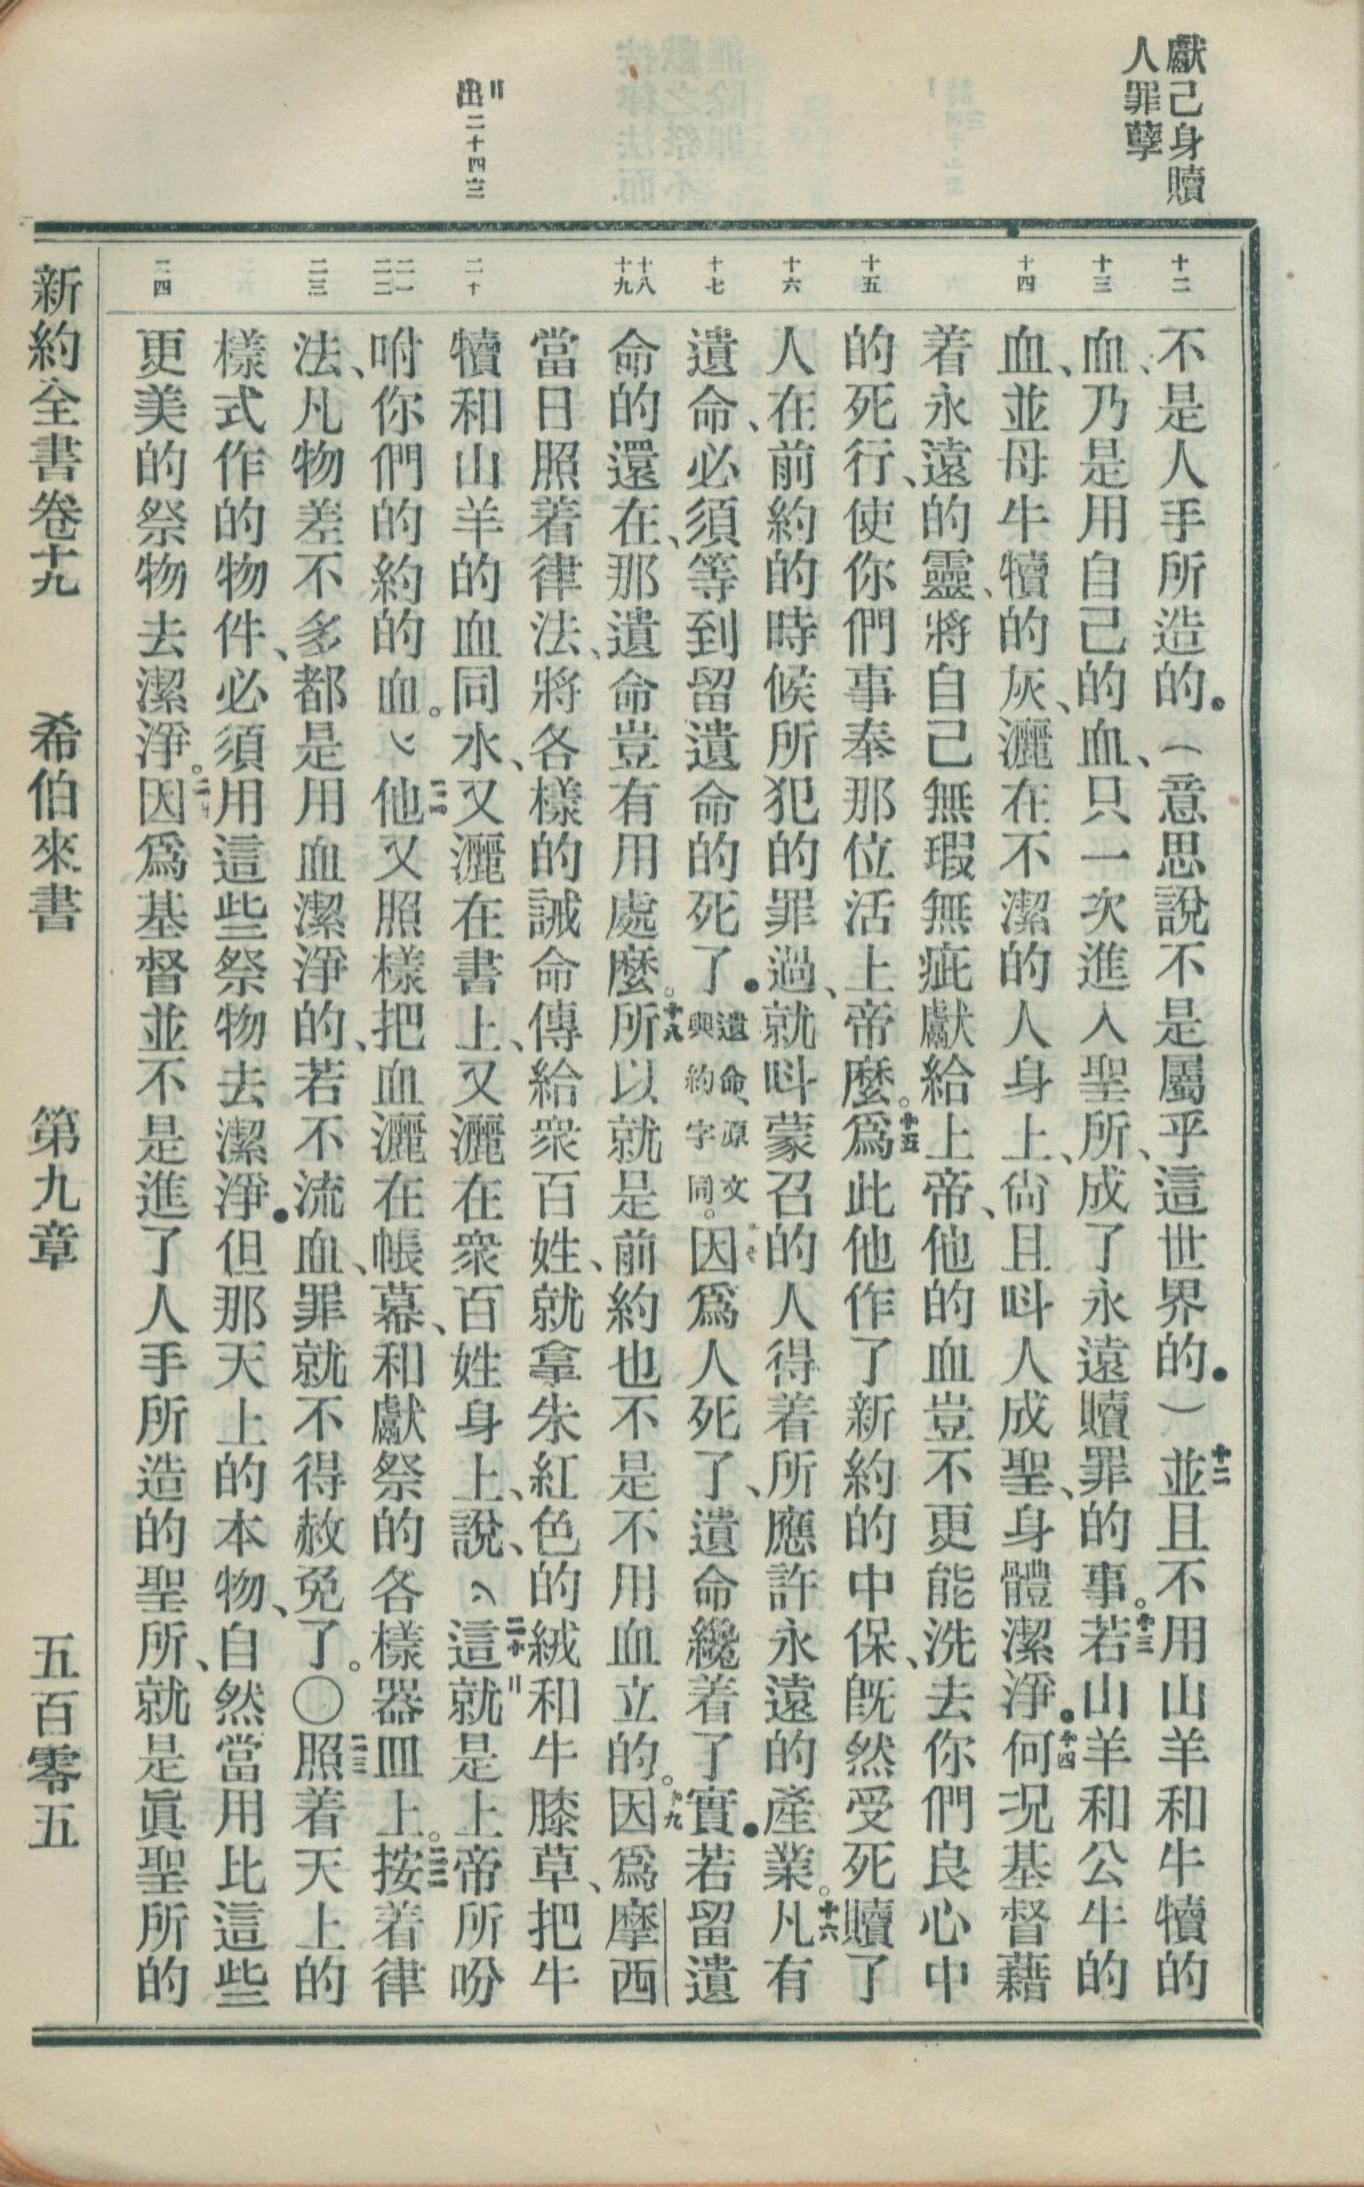 獻己身贖
人罪孽
〢出二十四〨
十二
十三
十四
十五
十六
十七
十八
十九
二十
二一
二二
二三
二四
不是人手所造的。（意思說不是屬乎這世界的。）十二並且不用山羊和牛犢的
血、乃是用自己的血、只一次進入聖所、成了永遠贖罪的事。十三若山羊和公牛的
血、並母牛犢的灰、灑在不潔的人身上、尙且呌人成聖、身體潔淨。十四何况基督藉
着永遠的靈、將自己無瑕無疵獻給上帝、他的血豈不更能洗去你們良心中
的死行、使你們事奉那位活上帝麽。十五爲此他作了新約的中保、旣然受死贖了
人在前約的時候所犯的罪過、就呌蒙召的人得着所應許永遠的產業。十六凡有
遺命、必須等到留遺命的死了。遺命、原文與約字同。因爲人死了、遺命纔着了實。若留遺
命的還在、那遺命豈有用處麽。十八所以就是前約也不是不用血立的。十九因爲摩西
當日照着律法、將各樣的誡命傳給衆百姓、就拿朱紅色的絨和牛膝草、把牛
犢和山羊的血同水、又灑在書上、又灑在衆百姓身上、說、〵二十這〢就是上帝所吩
咐你們的約的血。〵二一他又照樣把血灑在帳幕、和獻祭的各樣器皿上。二二按着律
法、凡物差不多都是用血潔淨的、若不流血、罪就不得赦免了。〇二三照着天上的
樣式作的物件、必須用這些祭物去潔淨。但那天上的本物、自然當用比這些
更美的祭物去潔淨。二四因爲基督並不是進了人手所造的聖所、就是眞聖所的
新約全書卷十九　希伯來書　第九章　五百零五